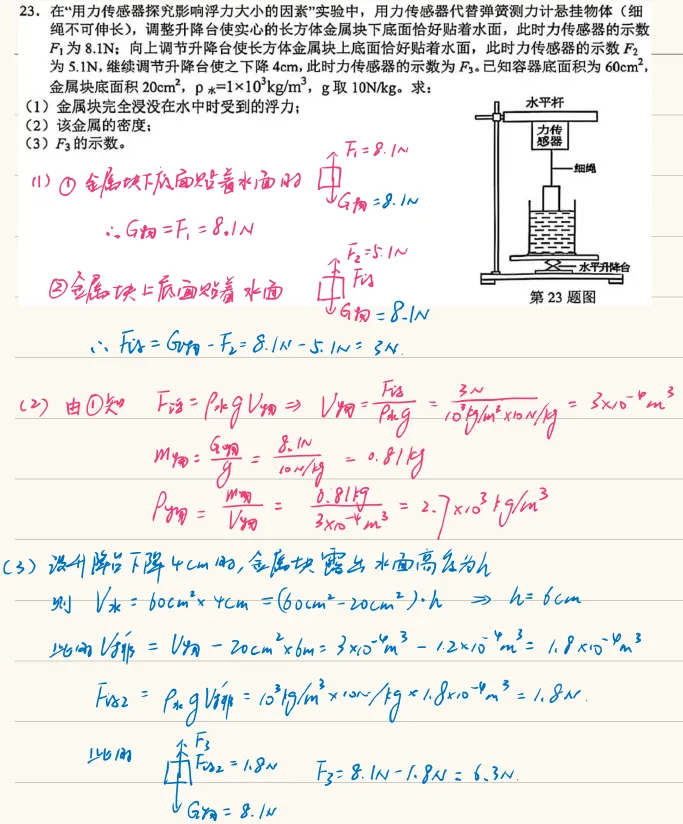 23. 在“用力传感器探究影响浮力大小的因素”实验中，用力传感器代替弹簧测力计悬挂物体（细
绳不可伸长），调整升降台使实心的长方体金属块下底面恰好贴着水面，此时力传感器的示数
F₁为 8.1N；向上调节升降台使长方体金属块上底面恰好贴着水面，此时力传感器的示数 F₂
为 5.1N，继续调节升降台使之下降 4cm，此时力传感器的示数为 F₃。已知容器底面积为 60cm²，
金属块底面积 20cm²，ρ水=1×10³kg/m³，g 取 10N/kg。求：
（1）金属块完全浸没在水中时受到的浮力；
（2）该金属的密度；
（3）F₃的示数。
水平杆
力传
感器
细绳
水平升降台
第 23 题图
(1) ① 金属块下底面贴着水面时
F₁=8.1N
G物=8.1N
∴G物=F₁=8.1N
②金属块上底面贴着水面
F₂=5.1N
F浮
G物=8.1N
∴F浮=G物-F₂=8.1N-5.1N=3N.
(2) 由①知 F浮=ρ水gV物⇒ V物=F浮/ρ水g=3N/10³kg/m³×10N/kg=3×10⁻⁴m³
m物=G物/g=8.1N/10N/kg=0.81kg
ρ物=m物/V物=0.81kg/3×10⁻⁴m³=2.7×10³kg/m³
(3) 设升降台下降4cm时,金属块露出水面高度为h
则 V水=60cm²×4cm=(60cm²-20cm²)·h ⇒ h=6cm
此时V排=V物-20cm²×6m=3×10⁻⁴m³-1.2×10⁻⁴m³=1.8×10⁻⁴m³
F浮2=ρ水gV排=10³kg/m³×10N/kg×1.8×10⁻⁴m³=1.8N.
此时
F₃
F浮2=1.8N
G物=8.1N
F₃=8.1N-1.8N=6.3N.